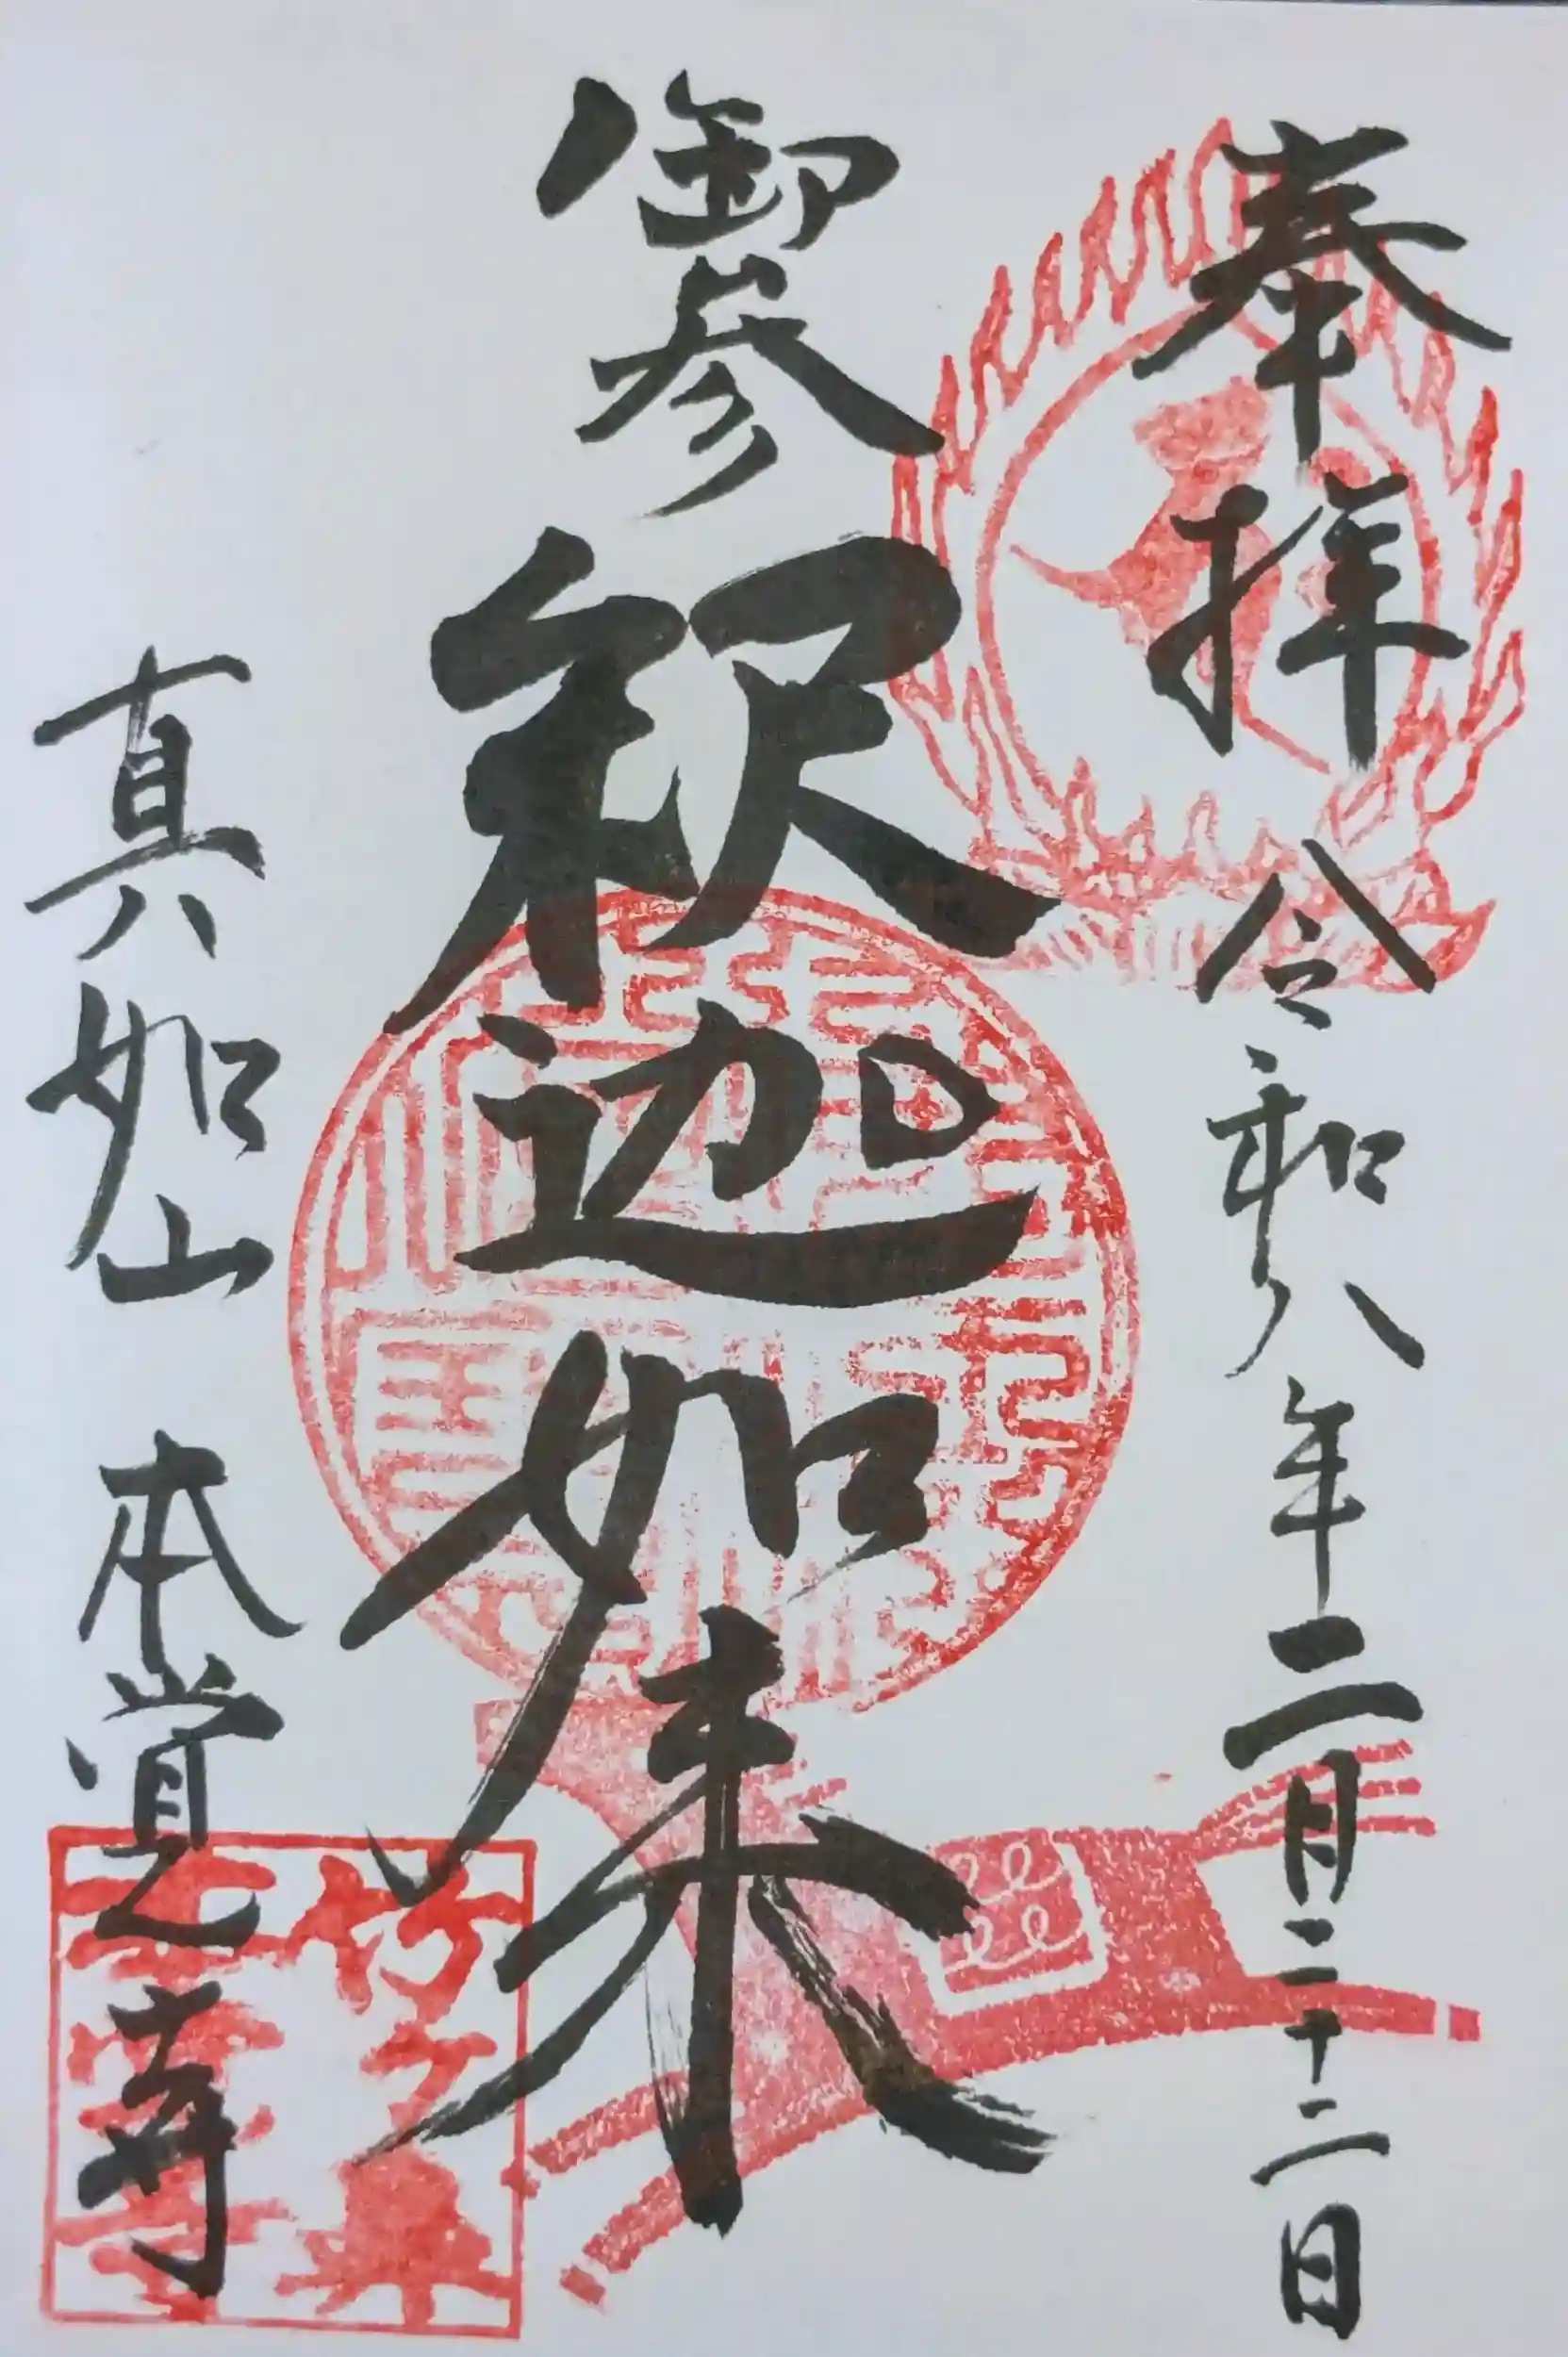 奉拝 令和八年二月二十二日
御参
釈迦如来
真如山 本覚寺